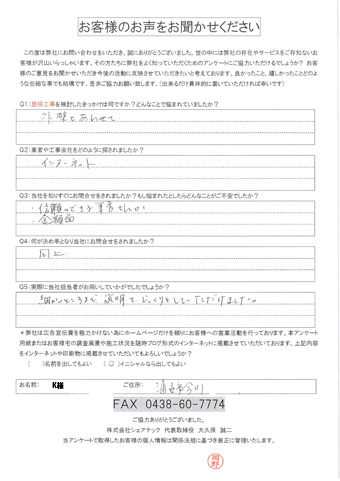 お客様のお声をお聞かせください
この度は弊社にお問い合わせをいただき、誠にありがとうございました。世の中には弊社の存在やサービスをご存知ないお
客様が沢山いらっしゃいます。その方たちに弊社をよく知っていただくためのアンケートにご協力いただけるでしょうか? お客
様のご意見をお聞かせいただき今後の活動に反映させていただきたいと考えております。良かったこと、嬉しかったことどのよ
うな些細な事でも結構です。是非ご協力お願い致します。(出来るだけ具体的に書いていただければ幸いです)
Q1:屋根工事を検討したきっかけは何ですか?どんなことで悩まれていましたか?
外壁とあわせて
Q2:業者や工事会社をどのように探されましたか?
インターネット
Q3:当社を知りすぐにお問合せをされましたか?もし悩まれたとしたらどんなことがご不安でしたか?
・信頼のできる業者さんか
・金額面
Q4:何が決め手となり当社にお問合せをされましたか?
同上
Q5:実際に当社担当者がお伺いしていかがでしたでしょうか?
細かいところまで説明をじっくりとして下さいました。
＊弊社は広告宣伝費を極力かけない為にホームページだけを頼りにお客様への営業活動を行っております。本アンケート
用紙またはお客様宅での調査風景や施工状況を随時ブログ形式のインターネットに掲載させていただいております。上記内容
をインターネットや印刷物に掲載させていただいてもよろしいでしょうか?
( )名前を出してもよい (○)イニシャルなら出してもよい
お名前: K様 ご住所: 浦安市今川
FAX 0438-60-7774
ご協力ありがとうございました。
株式会社シェアテック 代表取締役 大久保 誠二
当アンケートで取得したお客様の個人情報は関係法規に基づき厳正に管理いたします。
岡野